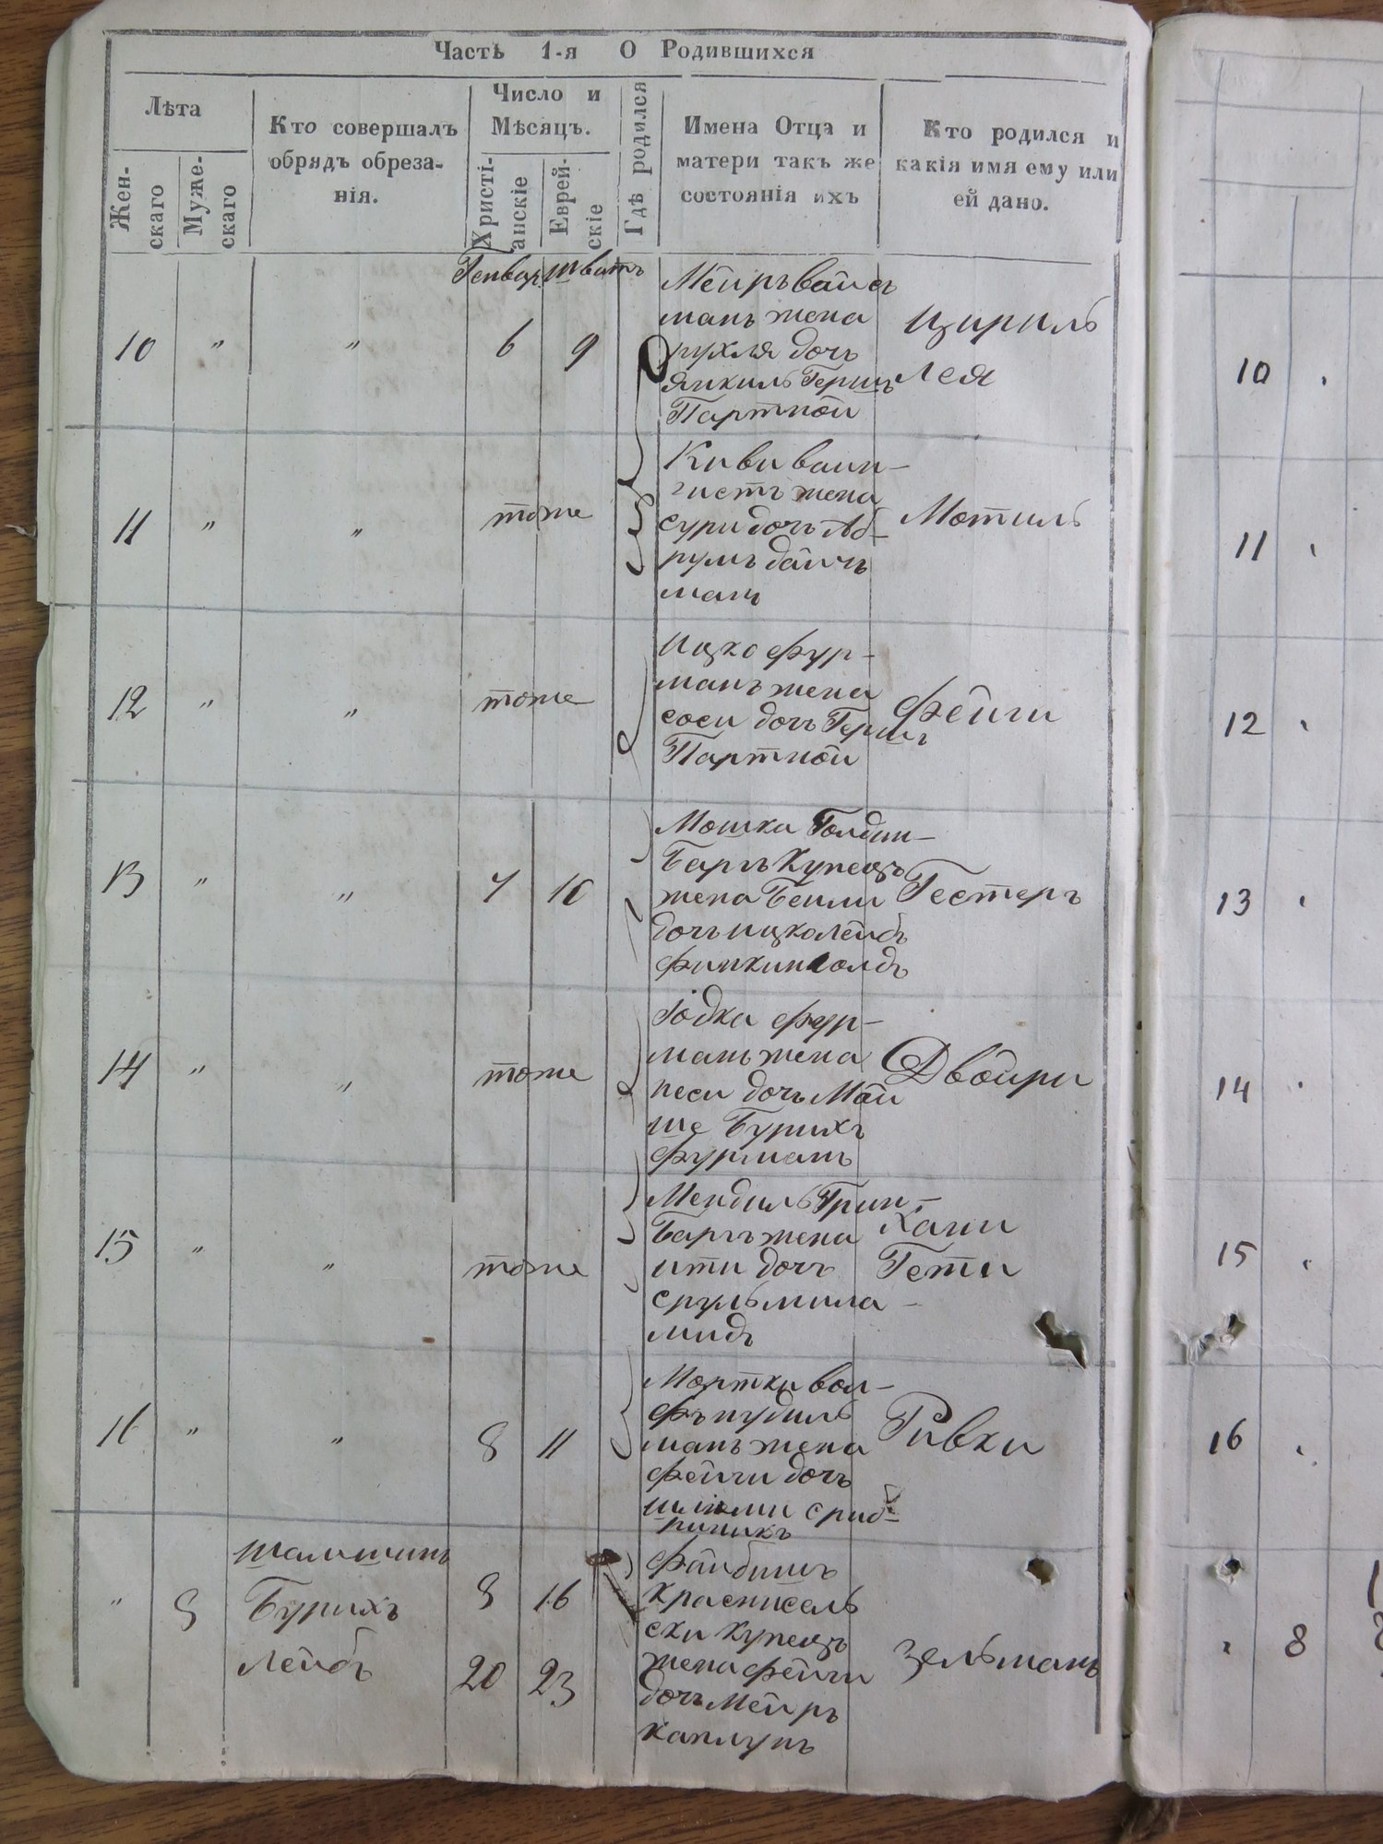 Часть 1-я О Родившихся
Лѣта
Женскаго
Мужескаго
Кто совершалъ
обрядъ обреза-
нія.
Число и
Мѣсяцъ.
Христі-
анскіе
Еврей-
скіе
Гдѣ родился
Имена Отца и
матери такъ же
состоянія ихъ
Кто родился и
какія имя ему или
ей дано.
Генвар Шватъ
10 " " 6 9
Мейръ вайсъ
манъ жена
рухля дочь
янкиль Гершъ
Партной
Цириль
Лея
11 " " тоже
Киви вайн-
гистъ жена
сури дочь Аб-
румъ дайчъ
манъ
Мотиль
12 " " тоже
Ицко фур-
манъ жена
соси дочь Гершъ
Партной
Фейги
13 " " 7 10
Мошка Голдин-
Бергъ Купецъ
жена Бейли
дочь ицко лейбъ
финкинголдъ
Гестеръ
14 " " тоже
Іодка фур-
манъ жена
песи дочь Мой
ше Бурихъ
фурманъ
Двойри
15 " " тоже
Мендиль Грин-
Бергъ жена
ити дочь
сруль мила-
мидъ
Хаи
Гети
16 " " 8 11
Мортки вол-
фъ
манъ жена
фейги дочь
шлиоми сриб-
рникъ
Ривки
" 8
Шальшинъ
Бурихъ
Лейбъ
8 16
20 23
Файбишъ
Красисель
ски Купецъ
жена фейги
дочь Мейръ
каплунъ
Зельманъ
10
11
12
13
14
15
16
8